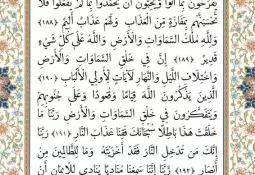 يَفْرَحُونَ بِمَا أَتَوْا وَيُحِبُّونَ أَنْ يُحْمَدُوا بِمَا لَمْ يَفْعَلُوا فَلَا
تَحْسَبَنَّهُمْ بِمَفَازَةٍ مِنَ الْعَذَابِ وَلَهُمْ عَذَابٌ أَلِيمٌ ﴿١٨٨﴾
وَلِلَّهِ مُلْكُ السَّمَاوَاتِ وَالْأَرْضِ وَاللَّهُ عَلَى كُلِّ شَيْءٍ
قَدِيرٌ ﴿١٨٩﴾ إِنَّ فِي خَلْقِ السَّمَاوَاتِ وَالْأَرْضِ
وَاخْتِلَافِ اللَّيْلِ وَالنَّهَارِ لَآيَاتٍ لِأُولِي الْأَلْبَابِ ﴿١٩٠﴾
الَّذِينَ يَذْكُرُونَ اللَّهَ قِيَامًا وَقُعُودًا وَعَلَى جُنُوبِهِمْ
وَيَتَفَكَّرُونَ فِي خَلْقِ السَّمَاوَاتِ وَالْأَرْضِ رَبَّنَا مَا
خَلَقْتَ هَذَا بَاطِلًا سُبْحَانَكَ فَقِنَا عَذَابَ النَّارِ ﴿١٩١﴾ رَبَّنَا
إِنَّكَ مَنْ تُدْخِلِ النَّارَ فَقَدْ أَخْزَيْتَهُ وَمَا لِلظَّالِمِينَ مِنْ
أَنْصَارٍ ﴿١٩٢﴾ رَبَّنَا إِنَّنَا سَمِعْنَا مُنَادِيًا يُنَادِي لِلْإِيمَانِ أَنْ